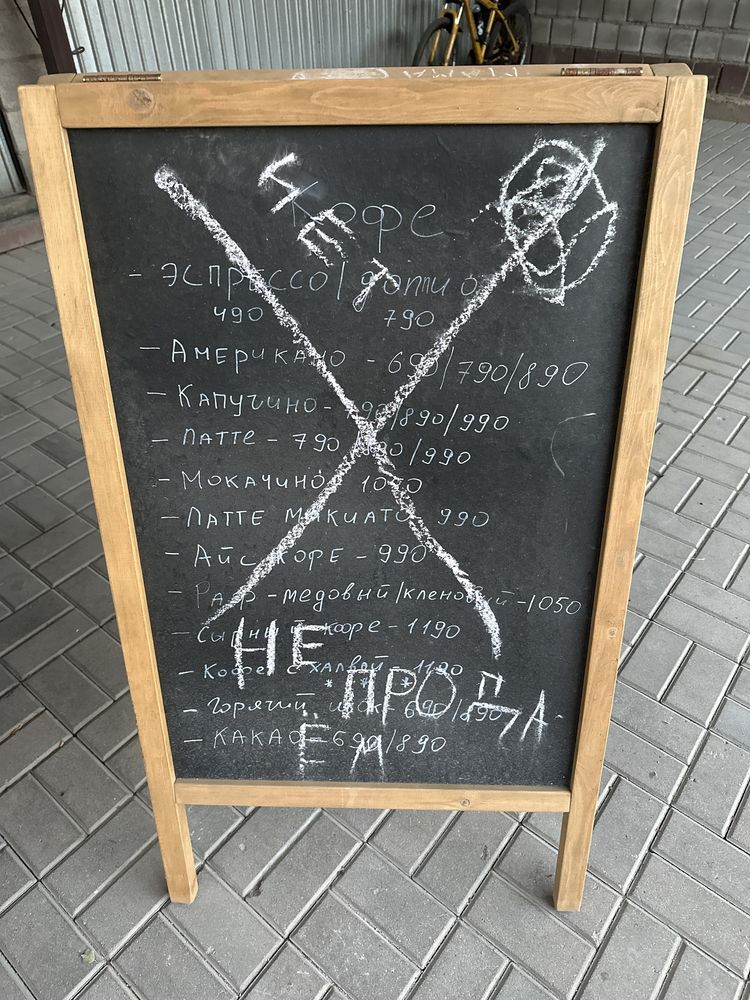 Кофе
НЕТ
- ЭСПРЕССО / доппио
490 790
- АМЕРИКАНО - 690/790/890
- КАПУЧИНО - 790/890/990
- ЛАТТЕ - 790/890/990
- МОКАЧИНО 1050
- ЛАТТЕ МАКИАТО - 990
- АЙС КОФЕ - 990
- РАФ - медовый/кленовый - 1050
- Сырный кофе - 1190
- Кофе с халвой - 1190
- горячий шок 690/890
- КАКАО - 690/890
НЕ
ПРОДА
ЁМ